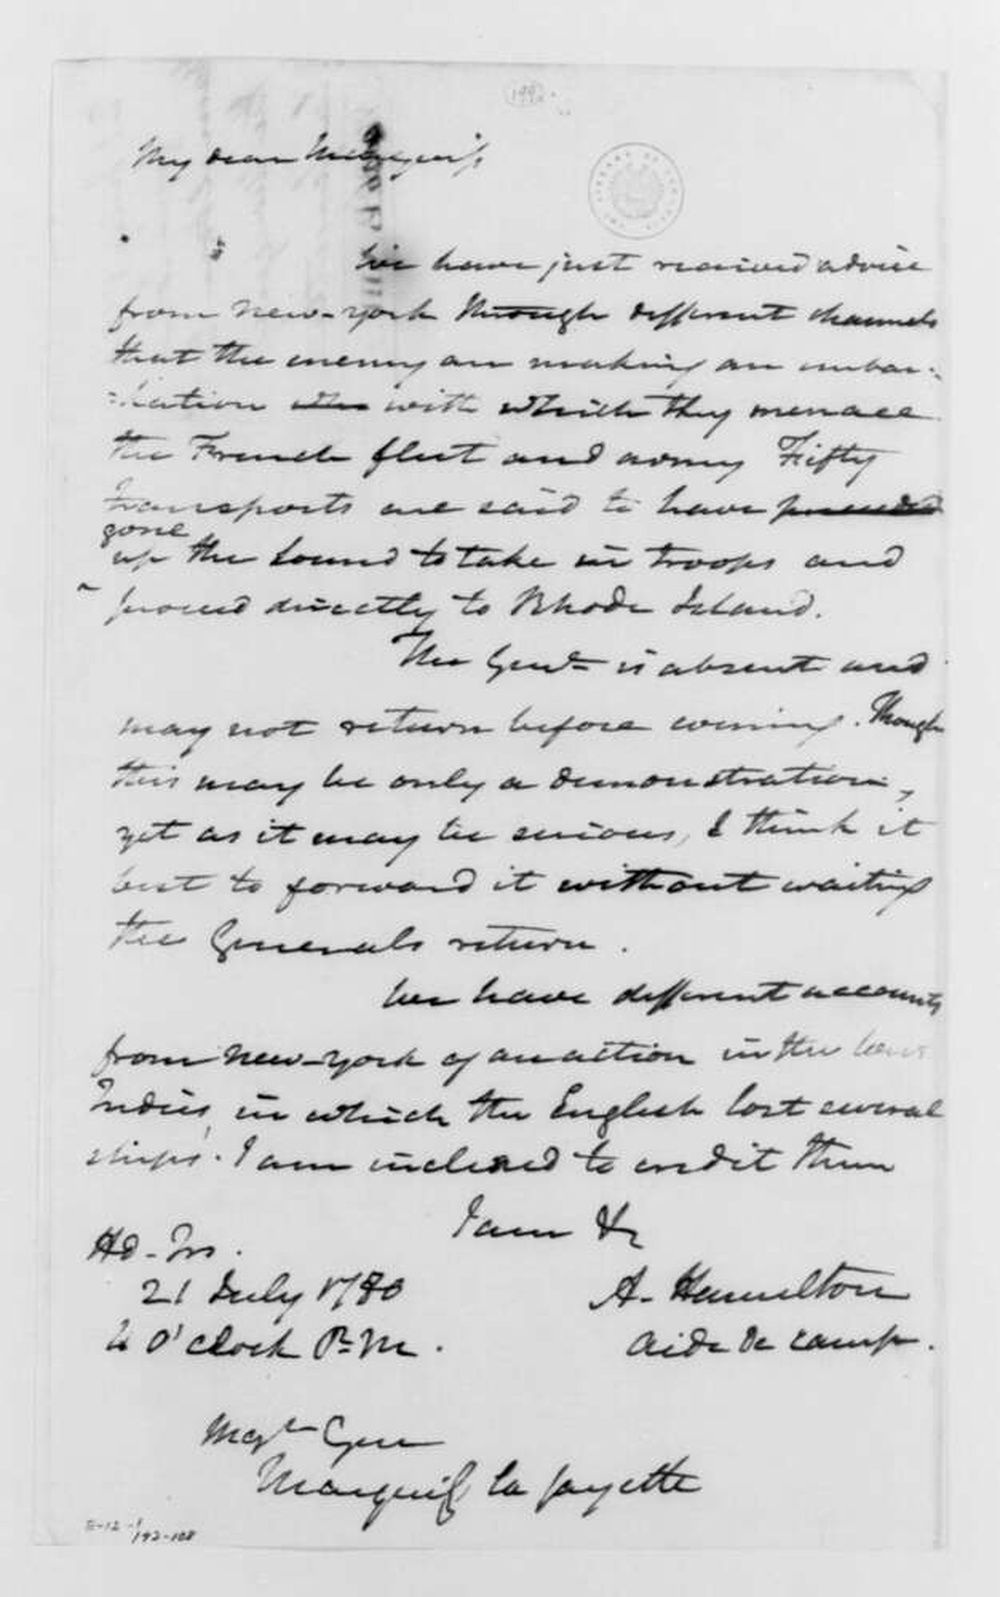 My dear Marquis,
We have just received advice
from New-York through different channels
that the enemy are making an embar-
-kation with which they menace
the French fleet and army Fifty
transports are said to have
gone
up the Sound to take in troops and
proceed directly to Rhode Island.
The Genl is absent and
may not return before evening. Though
this may be only a demonstration,
yet as it may be serious, I think it
best to forward it without waiting
the Generals return.
We have different accounts
from New-York of an action in the West
Indies, in which the English lost several
ships. I am inclined to credit them
I am &c
Hd-Qrs.
21 July 1780
A. Hamilton
4 O'clock P.M.
Aide De Camp.
Majr Gen
Marquis la fayette